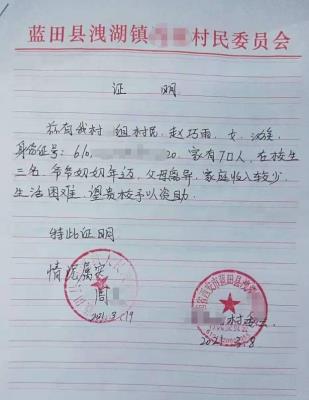 蓝田县洩湖镇 村民委员会
证 明
兹有我村 组村民 赵巧雨 女 汉族
身份证号: 610 20. 家有7口人, 在校生
三名, 爷爷奶奶年迈, 父母离异, 家庭收入较少
生活困难, 望贵校予以资助.
特此证明
情况属实
周
村委会
2021.3.19
2021.3.8